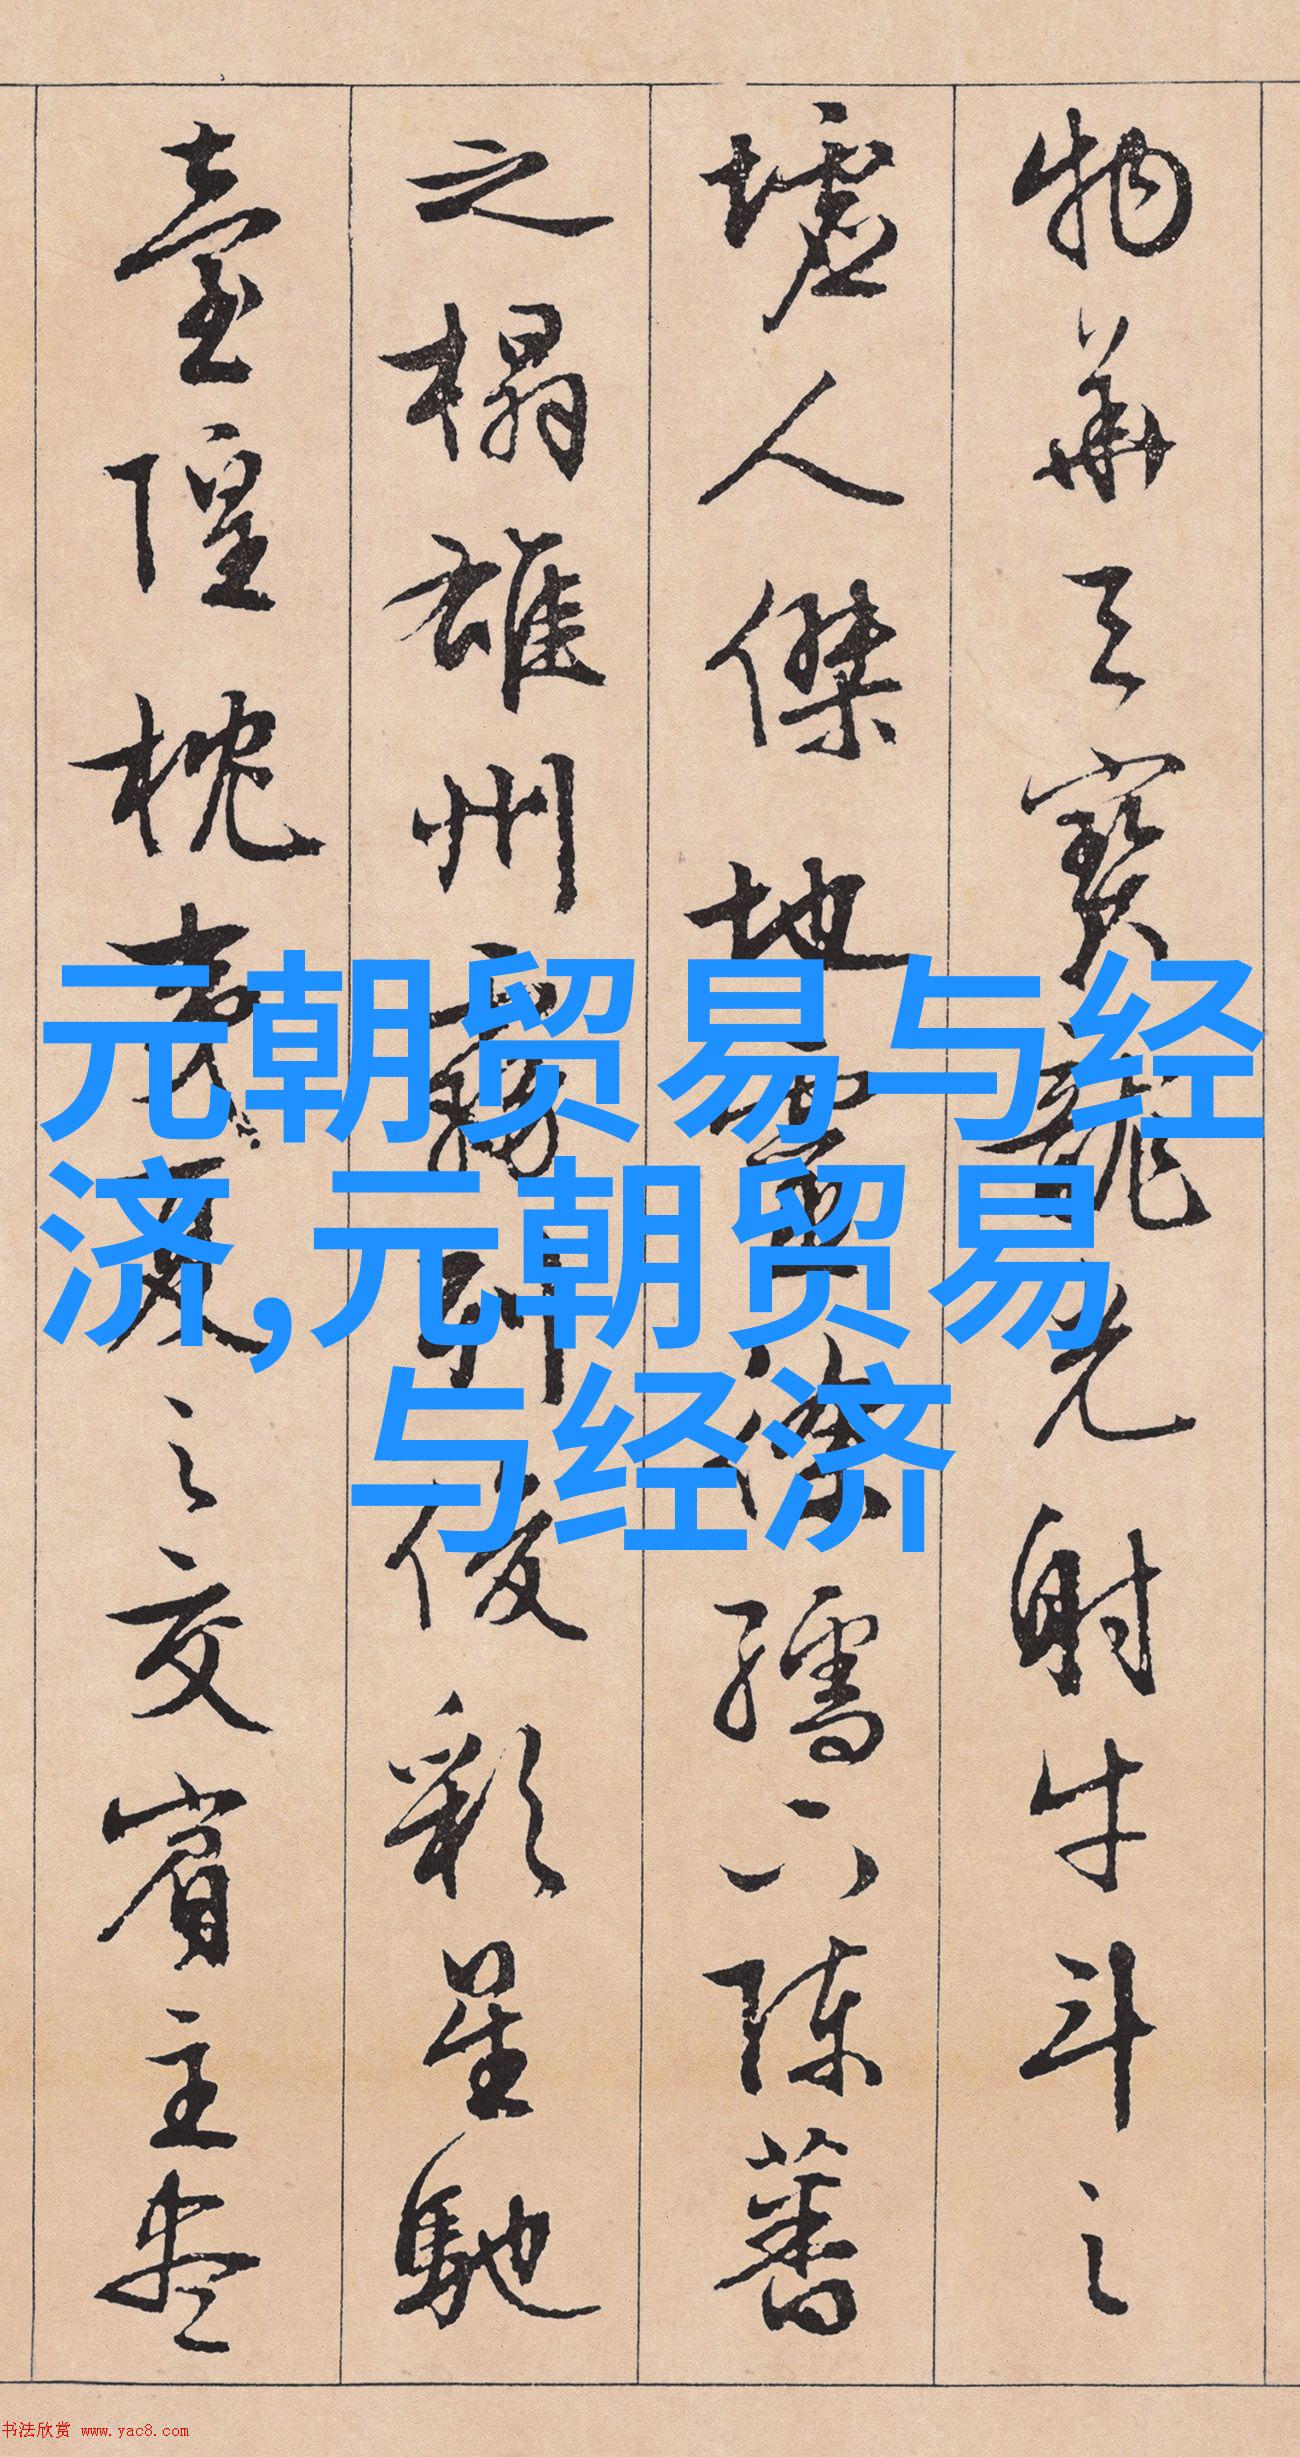 物華天寶龍光射牛斗之
墟人傑地靈徐孺下陳蕃
之榻雄州霧列俊彩星馳
臺隍枕夷夏之交賓主盡
元朝贸易与经
济,元朝贸易
与经济
书法欣赏 www.yac8.com